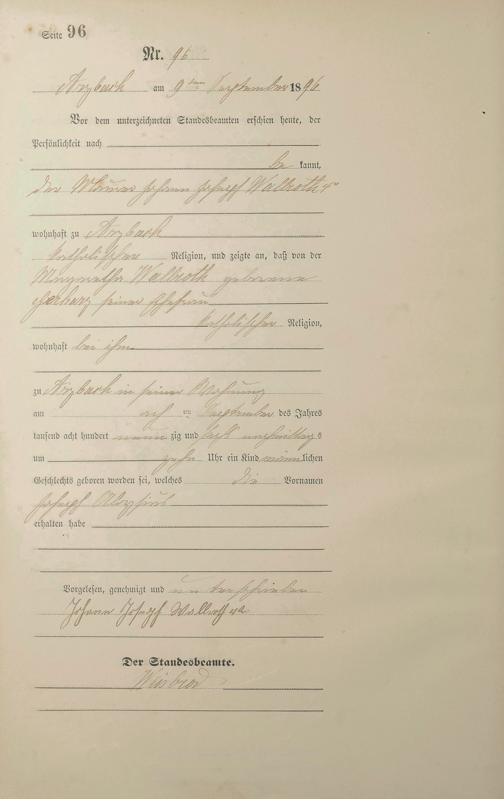 Seite 96
Nr. 96
Arzbach am 9ten September 1896
Vor dem unterzeichneten Standesbeamten erschien heute, der
Persönlichkeit nach
be kannt,
der Maurer Johann Joseph Wallroth
wohnhaft zu Arzbach
katholischer Religion, und zeigte an, daß von der
Margaretha Wallroth geborene
seiner Ehefrau
katholischer Religion,
wohnhaft bei ihm
zu Arzbach in seiner Wohnung
am ten September des Jahres
tausend acht hundert neun zig und sechs vormittags
um zehn Uhr ein Kind männlichen
Geschlechts geboren worden sei, welches die Vornamen
Joseph Aloysius
erhalten habe
Vorgelesen, genehmigt und unterschrieben
Johann Joseph Wallroth
Der Standesbeamte.